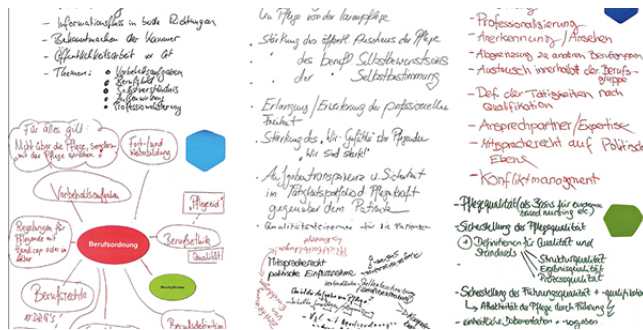 - Informationsfluss in beide Richtungen
- Bekanntmachen der Kammer
- Öffentlichkeitsarbeit
- Themen:
• Vorbehaltsaufgaben
• Berufsbild
• Selbstverständnis
• Außenwirkung
• Professionalisierung
Für alles gilt:
Nicht über die Pflege, sondern
mit der Pflege sprechen!
Fort- und
Weiterbildung
Vorbehaltsaufgaben
"Pflegeeid"
Regelungen für
Pflegende mit
Handicap oder im
Alter
Berufsordnung
Berufsethik
Qualität
Berufsrechte
Berufsdefinition
- Stärkung des öffentl. Ansehens der Pflege
- " des berufl. Selbstbewusstseins
- " der " Selbstbestimmung
- Erlangung/Erweiterung der professionellen
Freiheit
- Stärkung des "Wir-Gefühls" der Pflegenden
"Wir sind stark!"
- Aufgabentransparenz u. Sicherheit
im Tätigkeitsportfolio d. Pflegekraft
gegenüber dem Patienten
- Qualitätskriterien für die Patienten
Mitspracherecht
politische Einflussnahme
- Professionalisierung
- Anerkennung / Ansehen
- Abgrenzung zu anderen Berufsgruppen
- Austausch innerhalb der Berufs-
gruppe
- Def. der Tätigkeiten nach
Qualifikation
- Ansprechpartner / Expertise
- Mitspracherecht auf Politischer
Ebene
- Konfliktmanagment
- Pflegequalität (als Basis für evidence
based nursing etc.)
- Sicherstellung der Pflegequalität
Definitionen für Qualität und
Standards
Strukturqualität
Ergebnisqualität
Prozessqualität
- Sicherstellung der Führungsqualität + -qualifikation
Attraktivität der Pflege durch Führung
- einheitliche Dokumentation